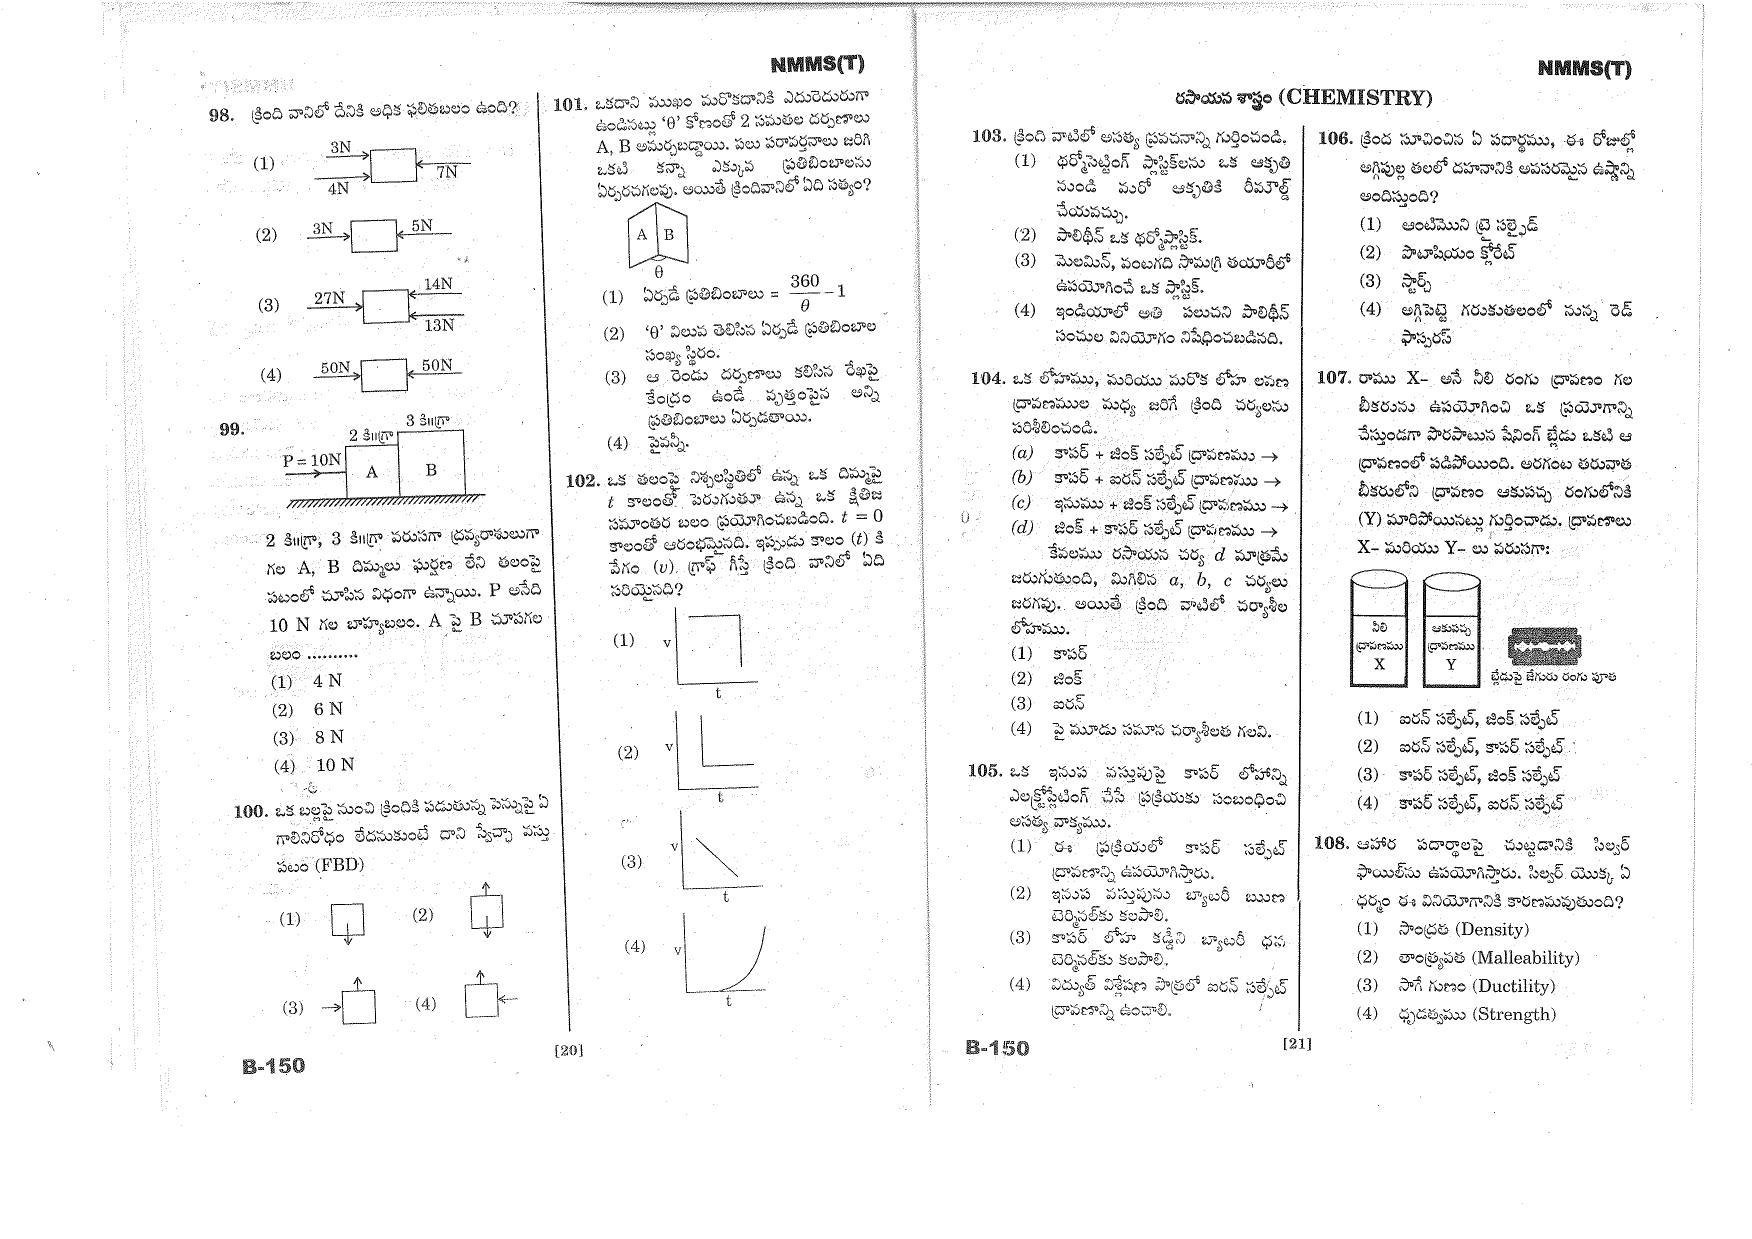 NMMS(T)
98. క్రింది వానిలో దేనికి అధిక ఫలితబలం ఉంది?
(1) 3N 4N 7N
(2) 3N 5N
(3) 27N 14N 13N
(4) 50N 50N
99.
P = 10N 2 కి॥గ్రా 3 కి॥గ్రా
A B
2 కి॥గ్రా, 3 కి॥గ్రా వరుసగా ద్రవ్యరాశులుగా
గల A, B దిమ్మలు ఘర్షణ లేని తలంపై
పటంలో చూపిన విధంగా ఉన్నాయి. P అనేది
10 N గల బాహ్యబలం. A పై B చూపగల
బలం ..........
(1) 4 N
(2) 6 N
(3) 8 N
(4) 10 N
100. ఒక బల్లపై నుంచి క్రిందికి పడుతున్న పెన్నుపై ఏ
గాలినిరోధం లేదనుకుంటే దాని స్వేచ్ఛా వస్తు
పటం (FBD)
(1) (2)
(3) (4)
B-150
101. ఒకదాని ముఖం మరొకదానికి ఎదురెదురుగా
ఉండినట్లు ‘θ’ కోణంతో 2 సమతల దర్పణాలు
A, B అమర్చబడ్డాయి. పలు పరావర్తనాలు జరిగి
ఒకటి కన్నా ఎక్కువ ప్రతిబింబాలను
ఏర్పరచగలవు. అయితే క్రిందివానిలో ఏది సత్యం?
A B
θ
(1) ఏర్పడే ప్రతిబింబాలు = 360/θ – 1
(2) ‘θ’ విలువ తెలిసిన ఏర్పడే ప్రతిబింబాల
సంఖ్య స్థిరం.
(3) ఆ రెండు దర్పణాలు కలిసిన రేఖపై
కేంద్రం ఉండే వృత్తంపైన అన్ని
ప్రతిబింబాలు ఏర్పడతాయి.
(4) పైవన్నీ.
102. ఒక తలంపై నిశ్చలస్థితిలో ఉన్న ఒక దిమ్మపై
t కాలంతో పెరుగుతూ ఉన్న ఒక క్షితిజ
సమాంతర బలం ప్రయోగించబడింది. t = 0
కాలంతో ఆరంభమైనది. ఇప్పుడు కాలం (t) కి
వేగం (v) గ్రాఫ్ గీస్తే క్రింది వానిలో ఏది
సరియైనది?
(1) v t
(2) v t
(3) v t
(4) v t
[20]
NMMS(T)
రసాయన శాస్త్రం (CHEMISTRY)
103. క్రింది వాటిలో అసత్య ప్రవచనాన్ని గుర్తించండి.
(1) థర్మోసెట్టింగ్ ప్లాస్టిక్‌లను ఒక ఆకృతి
నుండి మరో ఆకృతికి రీమౌల్డ్
చేయవచ్చు.
(2) పాలిథీన్ ఒక థర్మోప్లాస్టిక్.
(3) మెలమిన్, వంటగది సామగ్రి తయారీలో
ఉపయోగించే ఒక ప్లాస్టిక్.
(4) ఇండియాలో అతి పలుచని పాలిథీన్
సంచుల వినియోగం నిషేధించబడినది.
104. ఒక లోహము, మరియు మరొక లోహ లవణ
ద్రావణముల మధ్య జరిగే క్రింది చర్యలను
పరిశీలించండి.
(a) కాపర్ + జింక్ సల్ఫేట్ ద్రావణము →
(b) కాపర్ + ఐరన్ సల్ఫేట్ ద్రావణము →
(c) ఇనుము + జింక్ సల్ఫేట్ ద్రావణము →
(d) జింక్ + కాపర్ సల్ఫేట్ ద్రావణము →
కేవలము రసాయన చర్య d మాత్రమే
జరుగుతుంది, మిగిలిన a, b, c చర్యలు
జరగవు. అయితే క్రింది వాటిలో చర్యాశీల
లోహము.
(1) కాపర్
(2) జింక్
(3) ఐరన్
(4) పై మూడు సమాన చర్యాశీలత గలవి.
105. ఒక ఇనుప వస్తువుపై కాపర్ లోహాన్ని
ఎలక్ట్రోప్లేటింగ్ చేసే ప్రక్రియకు సంబంధించి
అసత్య వాక్యము.
(1) ఈ ప్రక్రియలో కాపర్ సల్ఫేట్
ద్రావణాన్ని ఉపయోగిస్తారు.
(2) ఇనుప వస్తువును బ్యాటరీ ఋణ
టెర్మినల్‌కు కలపాలి.
(3) కాపర్ లోహ కడ్డీని బ్యాటరీ ధన
టెర్మినల్‌కు కలపాలి.
(4) విద్యుత్ విశ్లేషణ పాత్రలో ఐరన్ సల్ఫేట్
ద్రావణాన్ని ఉంచాలి.
B-150
106. క్రింద సూచించిన ఏ పదార్థము, ఈ రోజుల్లో
అగ్గిపుల్ల తలలో దహనానికి అవసరమైన ఉష్ణాన్ని
అందిస్తుంది?
(1) ఆంటిమొని ట్రై సల్ఫైడ్
(2) పొటాషియం క్లోరేట్
(3) స్టార్చ్
(4) అగ్గిపెట్టె గరుకుతలంలో నున్న రెడ్
ఫాస్ఫరస్
107. రాము X– అనే నీలి రంగు ద్రావణం గల
బీకరును ఉపయోగించి ఒక ప్రయోగాన్ని
చేస్తుండగా పొరపాటున షేవింగ్ బ్లేడు ఒకటి ఆ
ద్రావణంలో పడిపోయింది. అరగంట తరువాత
బీకరులోని ద్రావణం ఆకుపచ్చ రంగులోనికి
(Y) మారిపోయినట్లు గుర్తించాడు. ద్రావణాలు
X– మరియు Y– లు వరుసగా:
నీలి ద్రావణము X
ఆకుపచ్చ ద్రావణము Y
బ్లేడుపై జేగురు రంగు పూత
(1) ఐరన్ సల్ఫేట్, జింక్ సల్ఫేట్
(2) ఐరన్ సల్ఫేట్, కాపర్ సల్ఫేట్
(3) కాపర్ సల్ఫేట్, జింక్ సల్ఫేట్
(4) కాపర్ సల్ఫేట్, ఐరన్ సల్ఫేట్
108. ఆహార పదార్థాలపై చుట్టడానికి సిల్వర్
ఫాయిల్‌ను ఉపయోగిస్తారు. సిల్వర్ యొక్క ఏ
ధర్మం ఈ వినియోగానికి కారణమవుతుంది?
(1) సాంద్రత (Density)
(2) తాంత్ర్యవత (Malleability)
(3) సాగే గుణం (Ductility)
(4) ధృడత్వము (Strength)
[21]